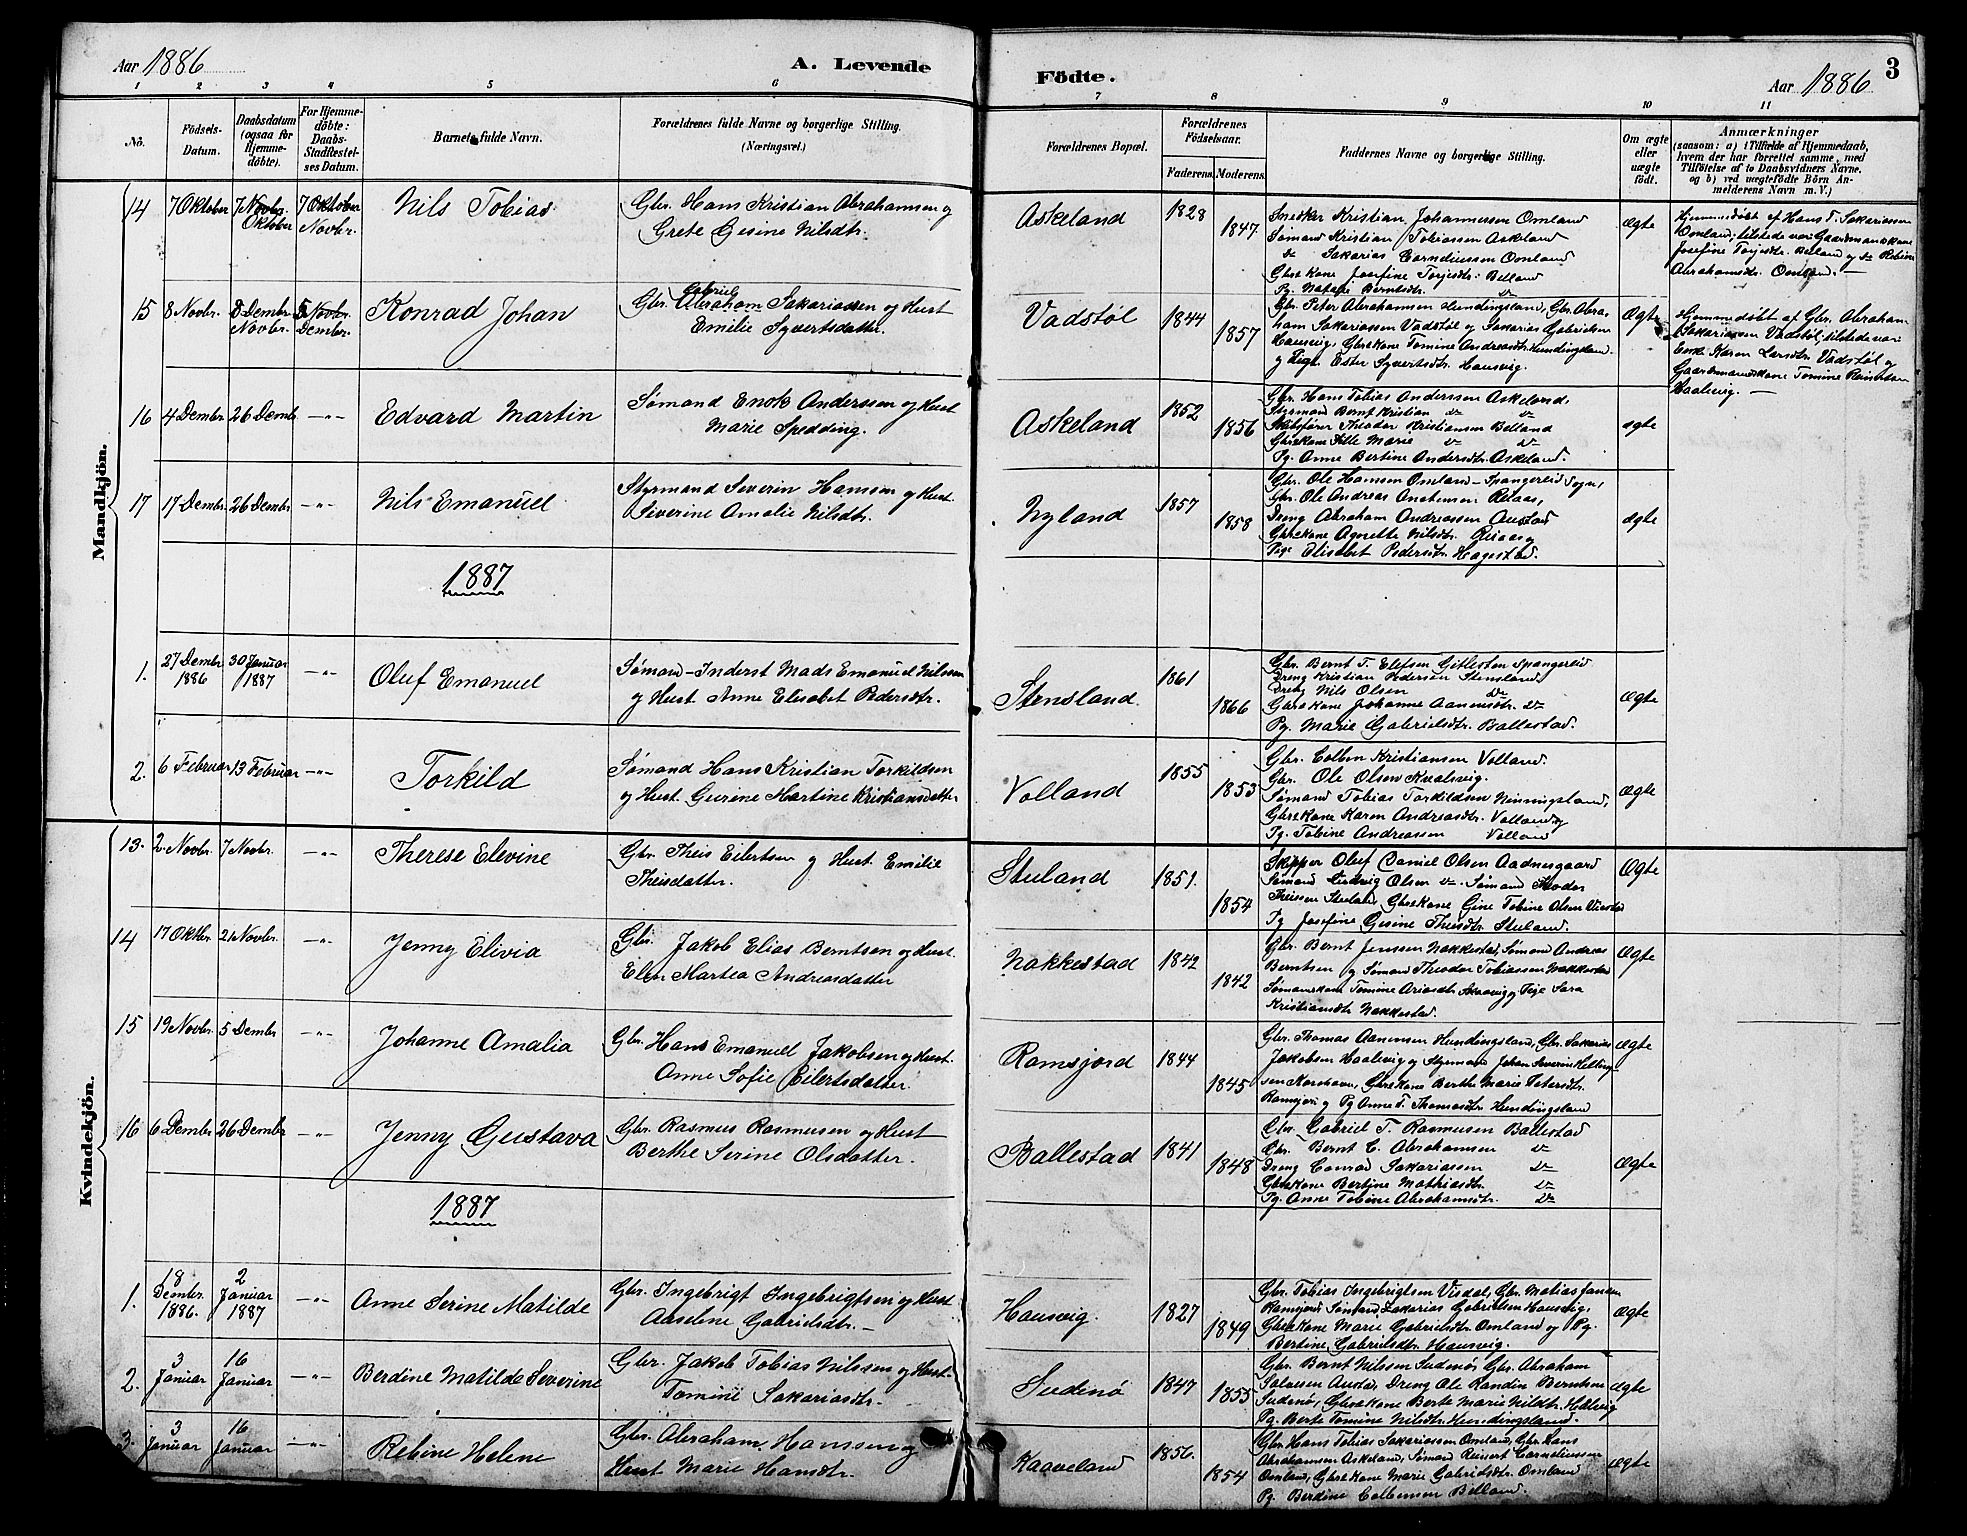 Aar 1886
A. Levende
Födte.
Aar 1886
3
1 2 3 4 5 6 7 8 9 10 11
No.
Födsels-
Datum.
Daabsdatum
(ogsaa for
Hjemme-
döbte).
For Hjemme-
döbte:
Daabs-
Stadfæstel-
ses Datum.
Barnets fulde Navn.
Forældrenes fulde Navne og borgerlige Stilling.
(Næringsvei.)
Forældrenes Bopæl.
Forældrenes
Födselsaar.
Faderens. Moderens.
Faddernes Navne og borgerlige Stilling.
Om ægte
eller
uægte
födt.
Anmærkninger
(saasom: a) i Tilfælde af Hjemmedaab,
hvem der har forrettet samme, med
Tilföielse af to Daabsvidners Navne,
og b) ved uægtefödte Börn An-
melderens Navn m. V.)
Mandkjön.
14 7 Oktober 7 Novbr. Oktober 7 Oktober Novbr. Nils Tobias
Gbr. Hans Kristian Abrahamsen og
Grete Gesine Nilsdtr.
Askeland 1828 1847
Snedker Kristian Johannessen Omland
Sømand Kristian Tobiassen Askeland
do Sakarias Corneliussen Omland
Gbrs Kone Josefine Torjesdtr. Belland
Pg. Natalie Berntsdtr. do
ægte
Hjemmedøbt af Hans T. Sakariassen
Omland, tilstede var Gaardmandskone
Josefine Torjesdtr Belland og do Rebine
Abrahamsdtr. Omland. —
15 8 Novbr. 5 Dembr. Novbr. 5 Novbr. Dembr. Konrad Johan
Gbr. Abraham Gabriel Sakariassen og Hust
Emilie Syvertsdatter.
Vadstøl 1844 1857
Gbr. Peter Abrahamsen Hundingsland, Gbr. Abra-
ham Sakariassen Vadstøl og Sakarias Gabrielsen
Hausvig, Gbrs Kone Tomine Andreasdtr. Hundingsland
og Pige Ester Syvertsdtr. Hausvig.
Ægte
Hjemmedøbt af Gbr. Abraham
Sakariassen Vadstøl, tilstede var
Enke Karen Larsdtr. Vadstøl og
Gaardmandskone Tomine Reinertsen
Haalevig. —
16 4 Dembr. 26 Dembr —"— Edvard Martin
Sømand Enok Anderssen og Hust
Marie Spedding.
Askeland 1852 1856
Gbr. Hans Tobias Anderssen Askeland,
Styrmand Bernt Kristian do do
Skibsfører Theodor Kristiansen Belland
Gbrs Kone Sille Marie do do
Pg. Anne Bertine Andersdtr. Askeland.
ægte
17 17 Dembr. 26 Dembr. —"— Nils Emanuel
Styrmand Severin Hansen og Hust
Siverine Amalie Nilsdtr.
Nyland 1857 1858
Gbr. Ole Hansen Omland – Spangereid Sogn,
Gbr. Ole Andreas Knutsen Relaas,
Dreng Abraham Andreassen Austad
Gbrs Kone Agnette Nilsdtr. Relaas og
Pige Elisabet Pedersdtr. Hagestad.
ægte
1887
1. 27 Dembr 1886 30 Januar 1887 —"— Oluf Emanuel
Sømand–Inderst Mads Emanuel Nilssen
og Hust Anne Elisabet Pedersdtr.
Stensland. 1861 1866
Gbr. Bernt T. Elefsen Gitlesten Spangereid
Dreng Kristian Pedersen Stensland,
Dreng Nils Olsen do
Gbrs Kone Johanne Aanensdtr. do
Pg. Marie Gabrielsdtr. Ballestad.
Ægte
2. 6 Februar 13 Februar —"— Torkild
Sømand Hans Kristian Torkildsen
og Hust. Gurine Martine Kristiansdatter
Volland 1855 1853
Gbr. Colben Kristiansen Volland.
Gbr. Ole Olsen Kvalsvig.
Sømand Tobias Torkildsen Ninningsland,
Gbrs Kone Karen Andreasdtr. Volland og
Pg. Tobine Andreassen Volland
Ægte
Kvindekjön.
13. 2 Novbr. 7 Novbr. —"— Therese Elevine
Gbr. Theis Eilertsen og Hust. Emilie
Theisdatter.
Stuland 1851. 1854
Skipper Oluf Daniel Olsen Aadnesgaard
Sømand Ludvig Olsen do. Sømand Theodor
Theissen Stuland, Gbrs Kone Gine Tobine Olsen
Pg. Josefine Gesine Theisdtr. Stuland.
Ægte
14 17 Oktbr. 21 Novbr. —"— Jenny Elivia
Gbr. Jakob Elias Berntsen og Hust.
Elen Martea Andreasdatter
Nakkestad 1842 1842
Gbr. Bernt Jenssen Nakkestad, Sømand Andreas
Berntsen og Sømand Theodor Tobiassen Nakkestad
Sømandskone Tomine og Pige Sara
Kristiansdtr Nakkestad.
Ægte
15 19 Novbr. 5 Dembr —"— Johanne Amalia
Gbr. Hans Emanuel Jakobsen og Hust.
Anne Sofie Eilertsdatter
Ramsjord 1844 1845
Gbr. Thomas Aanensen Hundingsland, Gbr. Sakarias
Jakobsen Haalevig og Styrmand Johan Severin
Korshavn, Gbrs Kone Berthe Marie Petersdtr.
Ramsjord og Pg Anne T. Thomasdtr. Hundingsland
ægte
16 6 Dembr 26 Dembr —"— Jenny Gustava
Gbr. Rasmus Rasmusen og Hust
Berthe Serine Olsdatter.
Ballestad 1841 1848
Gbr. Gabriel T. Rasmusen Ballestad
Gbr. Bernt C. Abrahamsen do
Dreng Conrad Sakariassen do
Gbrs Kone Bertine Mathiasdtr. do
Pg. Anne Tobine Abrahamsdtr. do
Ægte
1887
1. 18 Dembr. 1886. 2 Januar 1887 —"— Anne Serine Matilde
Gbr. Ingebrigt Ingebrigtsen og Hust.
Aaselene Gabrielsdtr. —
Hausvig. 1827 1849
Gbr. Tobias Ingebrigtsen Visdal, Gbr. Matias Jansen
Ramsjord Sømand Zakarias Gabrielsen Hausvig,
Gbrs Kone Marie Gabrielsdtr. Omland og Pg.
Bertine Gabrielsdtr. Hausvig.
Ægte
2. 3 Januar 16 Januar —"— Berdine Matilde Severine
Gbr. Jakob Tobias Nilssen og Hust.
Tomine Sakariasdtr.
Sudenø 1847 1855
Gbr. Bernt Nilssen Sudenø, Gbr. Abraham
Salvesen Austad, Dreng Ole Randin Berntsen
Sudenø, Gbrs Kone Berte Marie Nilsdtr. Hellevig
Pg. Berte Tomine Nilsdtr. Hundingsland.
Ægte
3. 3 Januar 16 Januar —"— Rebine Helene
Gbr. Abraham Hanssen og
Hust Marie Hansdtr.
Kaaveland 1856. 1854
Gbr. Hans Tobias Sakariassen Omland, Gbr. Hans
Abrahamsen Askeland, Sømand Reinert Corneliussen
Omland, Gbrs Kone Marie Gabrielsdtr. Omland
Pg. Berdine Colbensen Belland.
ægte